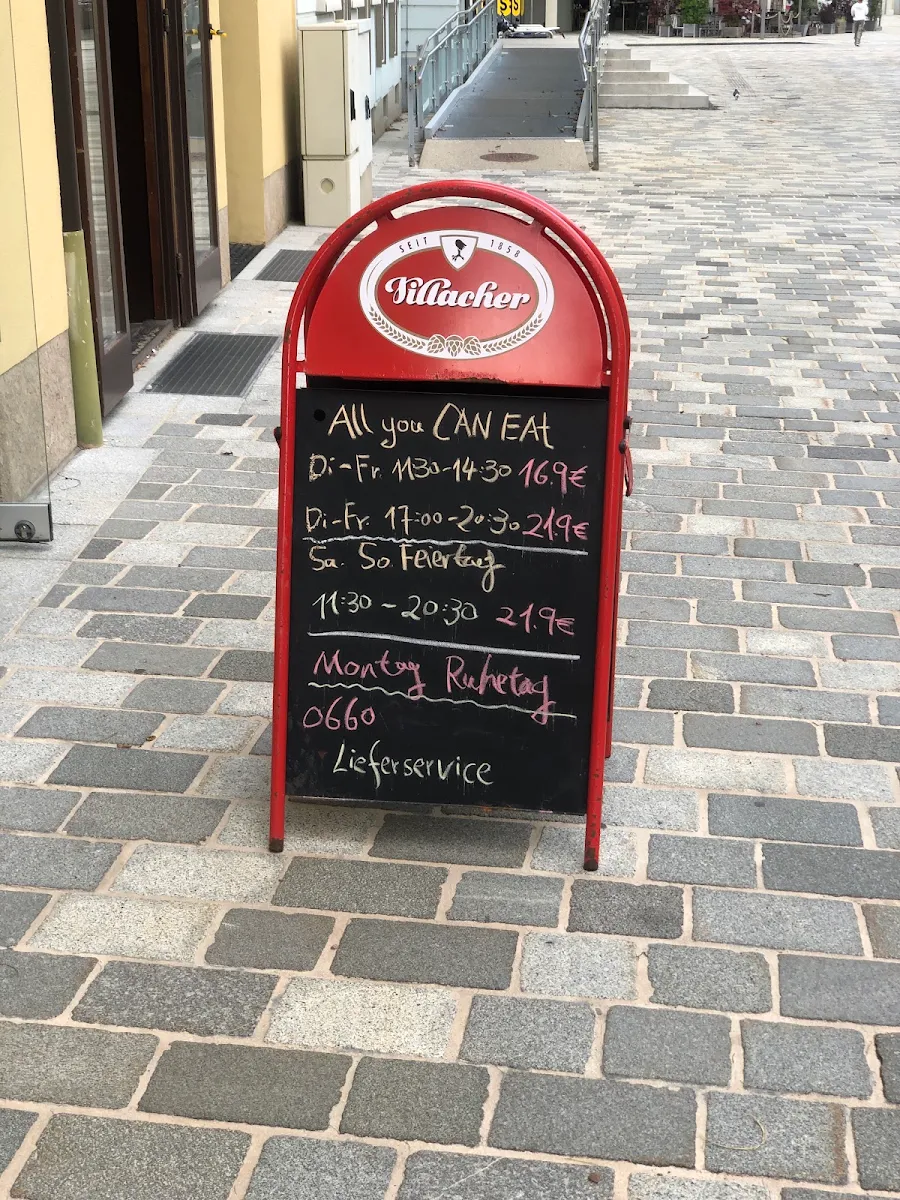 SS
SEIT 1858
Villacher
All you CAN EAt
Di-Fr. 1130-14:30 16.9€
Di-Fr. 17:00-20:30 21.9€
Sa. So Feiertag
11:30-20:30 21.9€
Montag Ruhetag
0660
Lieferservice